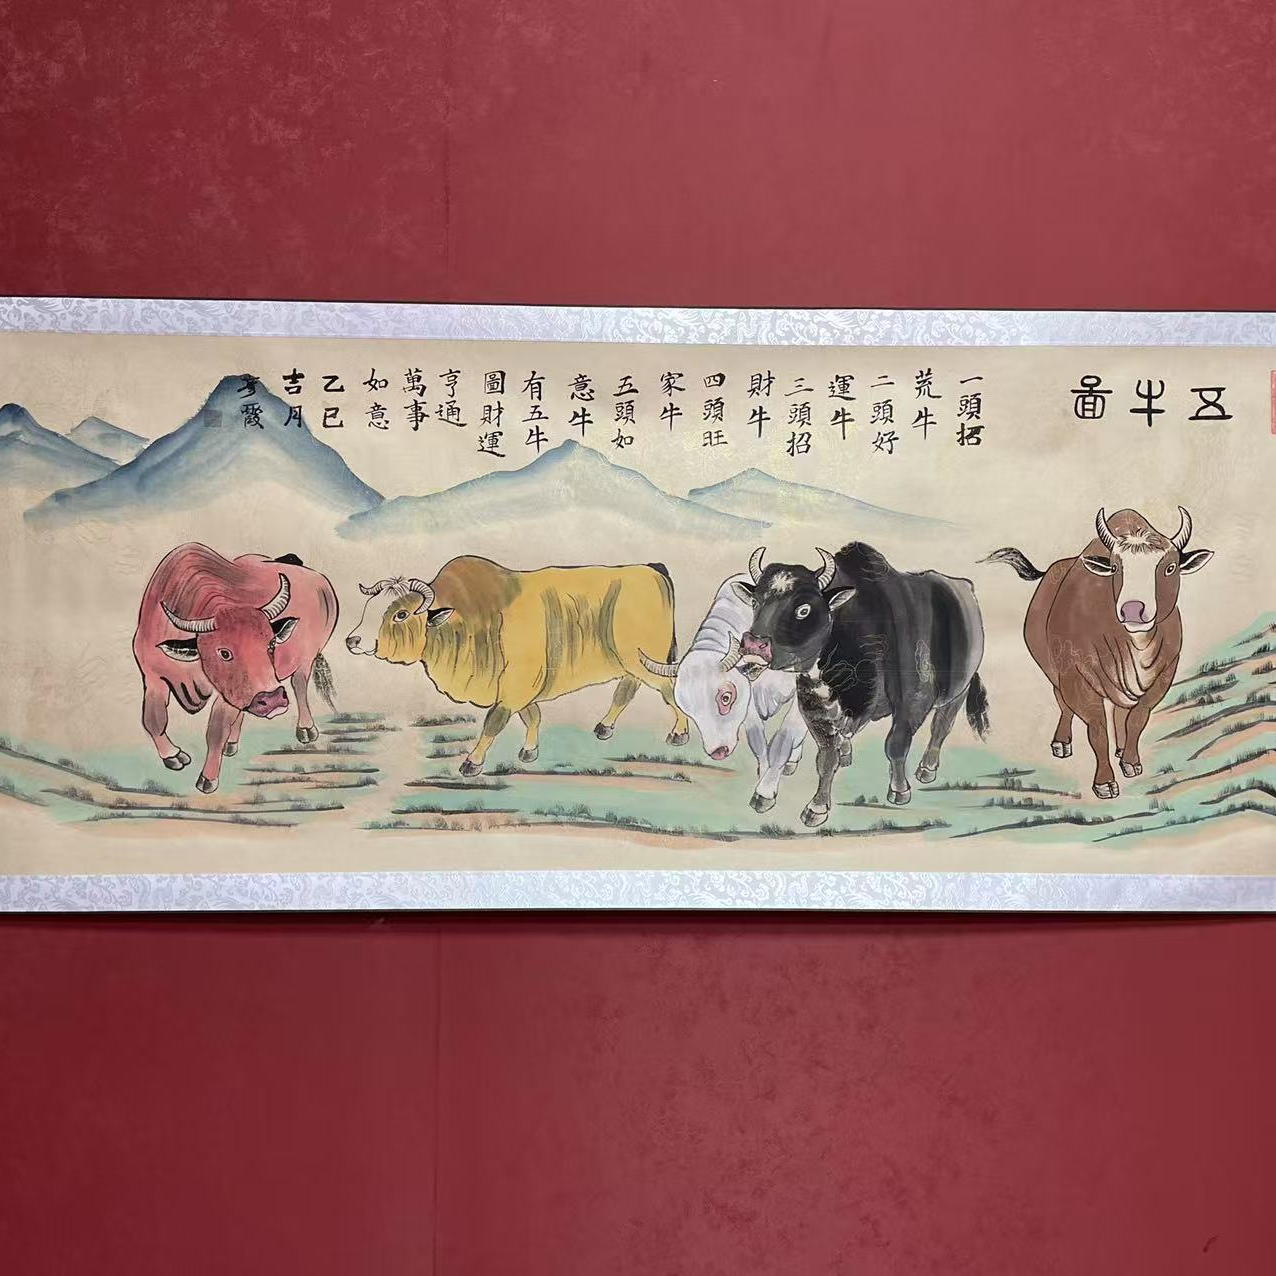 五牛圖
一頭招
荒牛
二頭好
運牛
三頭招
財牛
四頭旺
家牛
五頭如
意牛
有五牛
圖財運
亨通
萬事
如意
乙巳
吉月